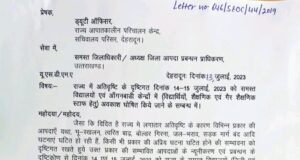 Letter no- 646/SEOC/44/2019
प्रेषक,
ड्यूटी ऑफिसर,
राज्य आपातकालीन परिचालन केन्द्र,
सचिवालय परिसर, देहरादून।
सेवा में,
समस्त जिलाधिकारी/ अध्यक्ष जिला आपदा प्रबन्धन प्राधिकरण,
उत्तराखण्ड।
यू.एस.डी.एम.ए देहरादून दिनांक 13 जुलाई, 2023
विषय— राज्य में अतिवृष्टि के दृष्टिगत दिनांक 14–15 जुलाई, 2023 को समस्त
विद्यालयों एवं आंगनबाड़ी केन्द्रों में (विद्यार्थियों, शैक्षणिक एवं गैर शैक्षणिक
स्टाफ हेतु) अवकाश घोषित किये जाने के सम्बन्ध में।
महोदय/महोदया,
जैसा कि विदित है राज्य में लगातार अतिवृष्टि के कारण विभिन्न प्रकार की
आपदायें यथा, भू-स्खलन, त्वरित बाढ़, बोल्डर गिरना, जल-भराव, सड़क मार्ग बंद आदि
घटनायें घटित हो रही हैं। किसी भी प्रकार की अप्रिय घटना घटित होने की सम्भावना
के दृष्टिगत